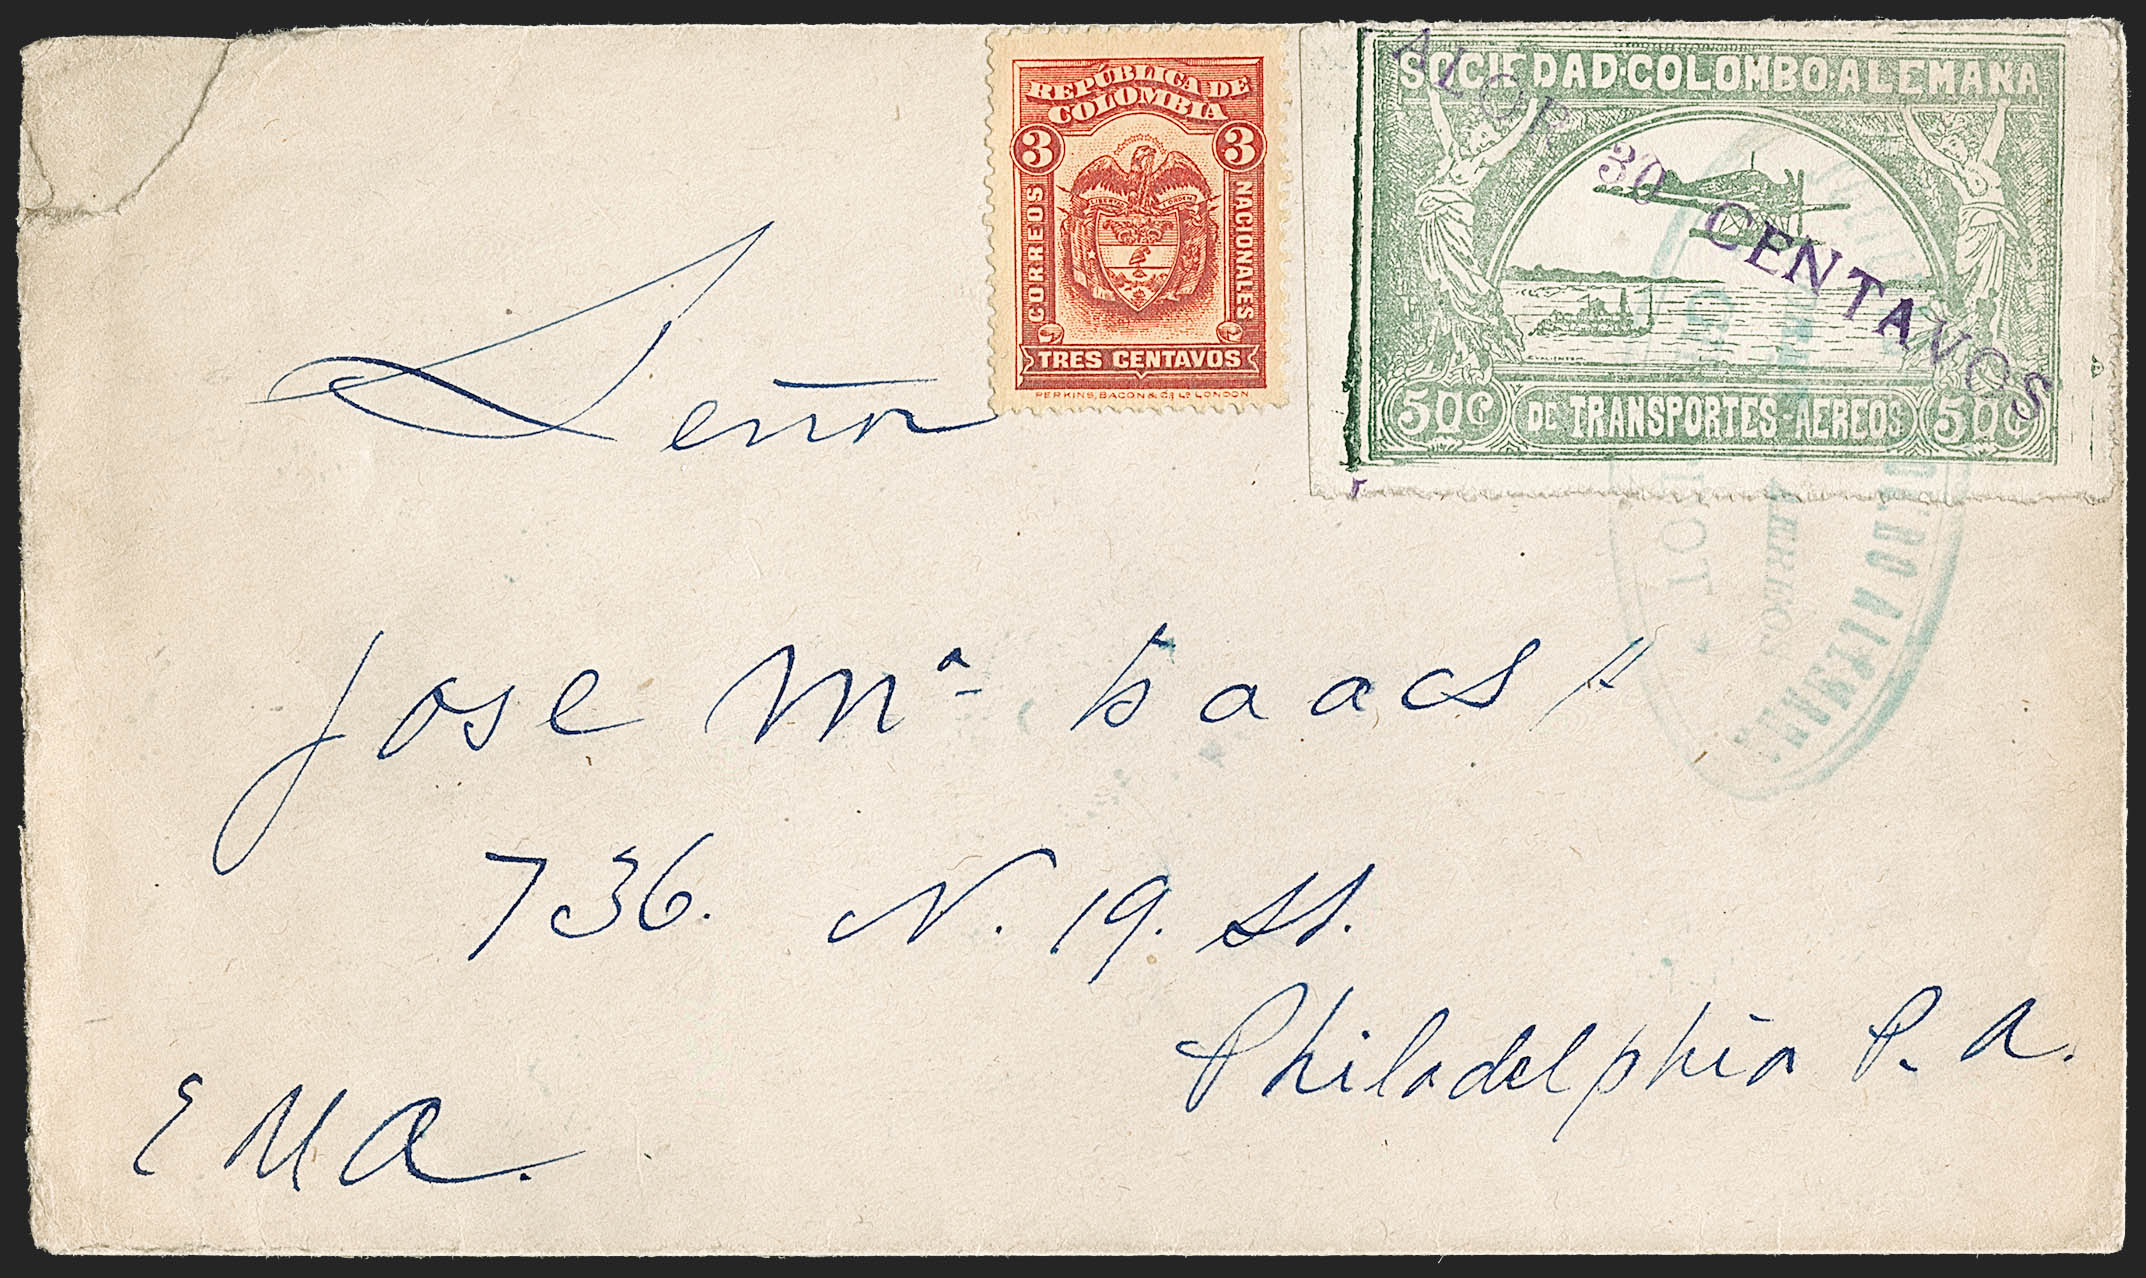 REPÚBLICA DE
COLOMBIA
3 3
CORREOS
NACIONALES
TRES CENTAVOS
PERKINS, BACON & Cº Lᴰ LONDON
SOCIEDAD·COLOMBO·ALEMANA
VALOR 30 CENTAVOS
50¢ DE TRANSPORTES-AEREOS 50¢
Señor
Jose Mª Isaacs
736. N. 19. St.
Philadelphia P. A.
E U A.